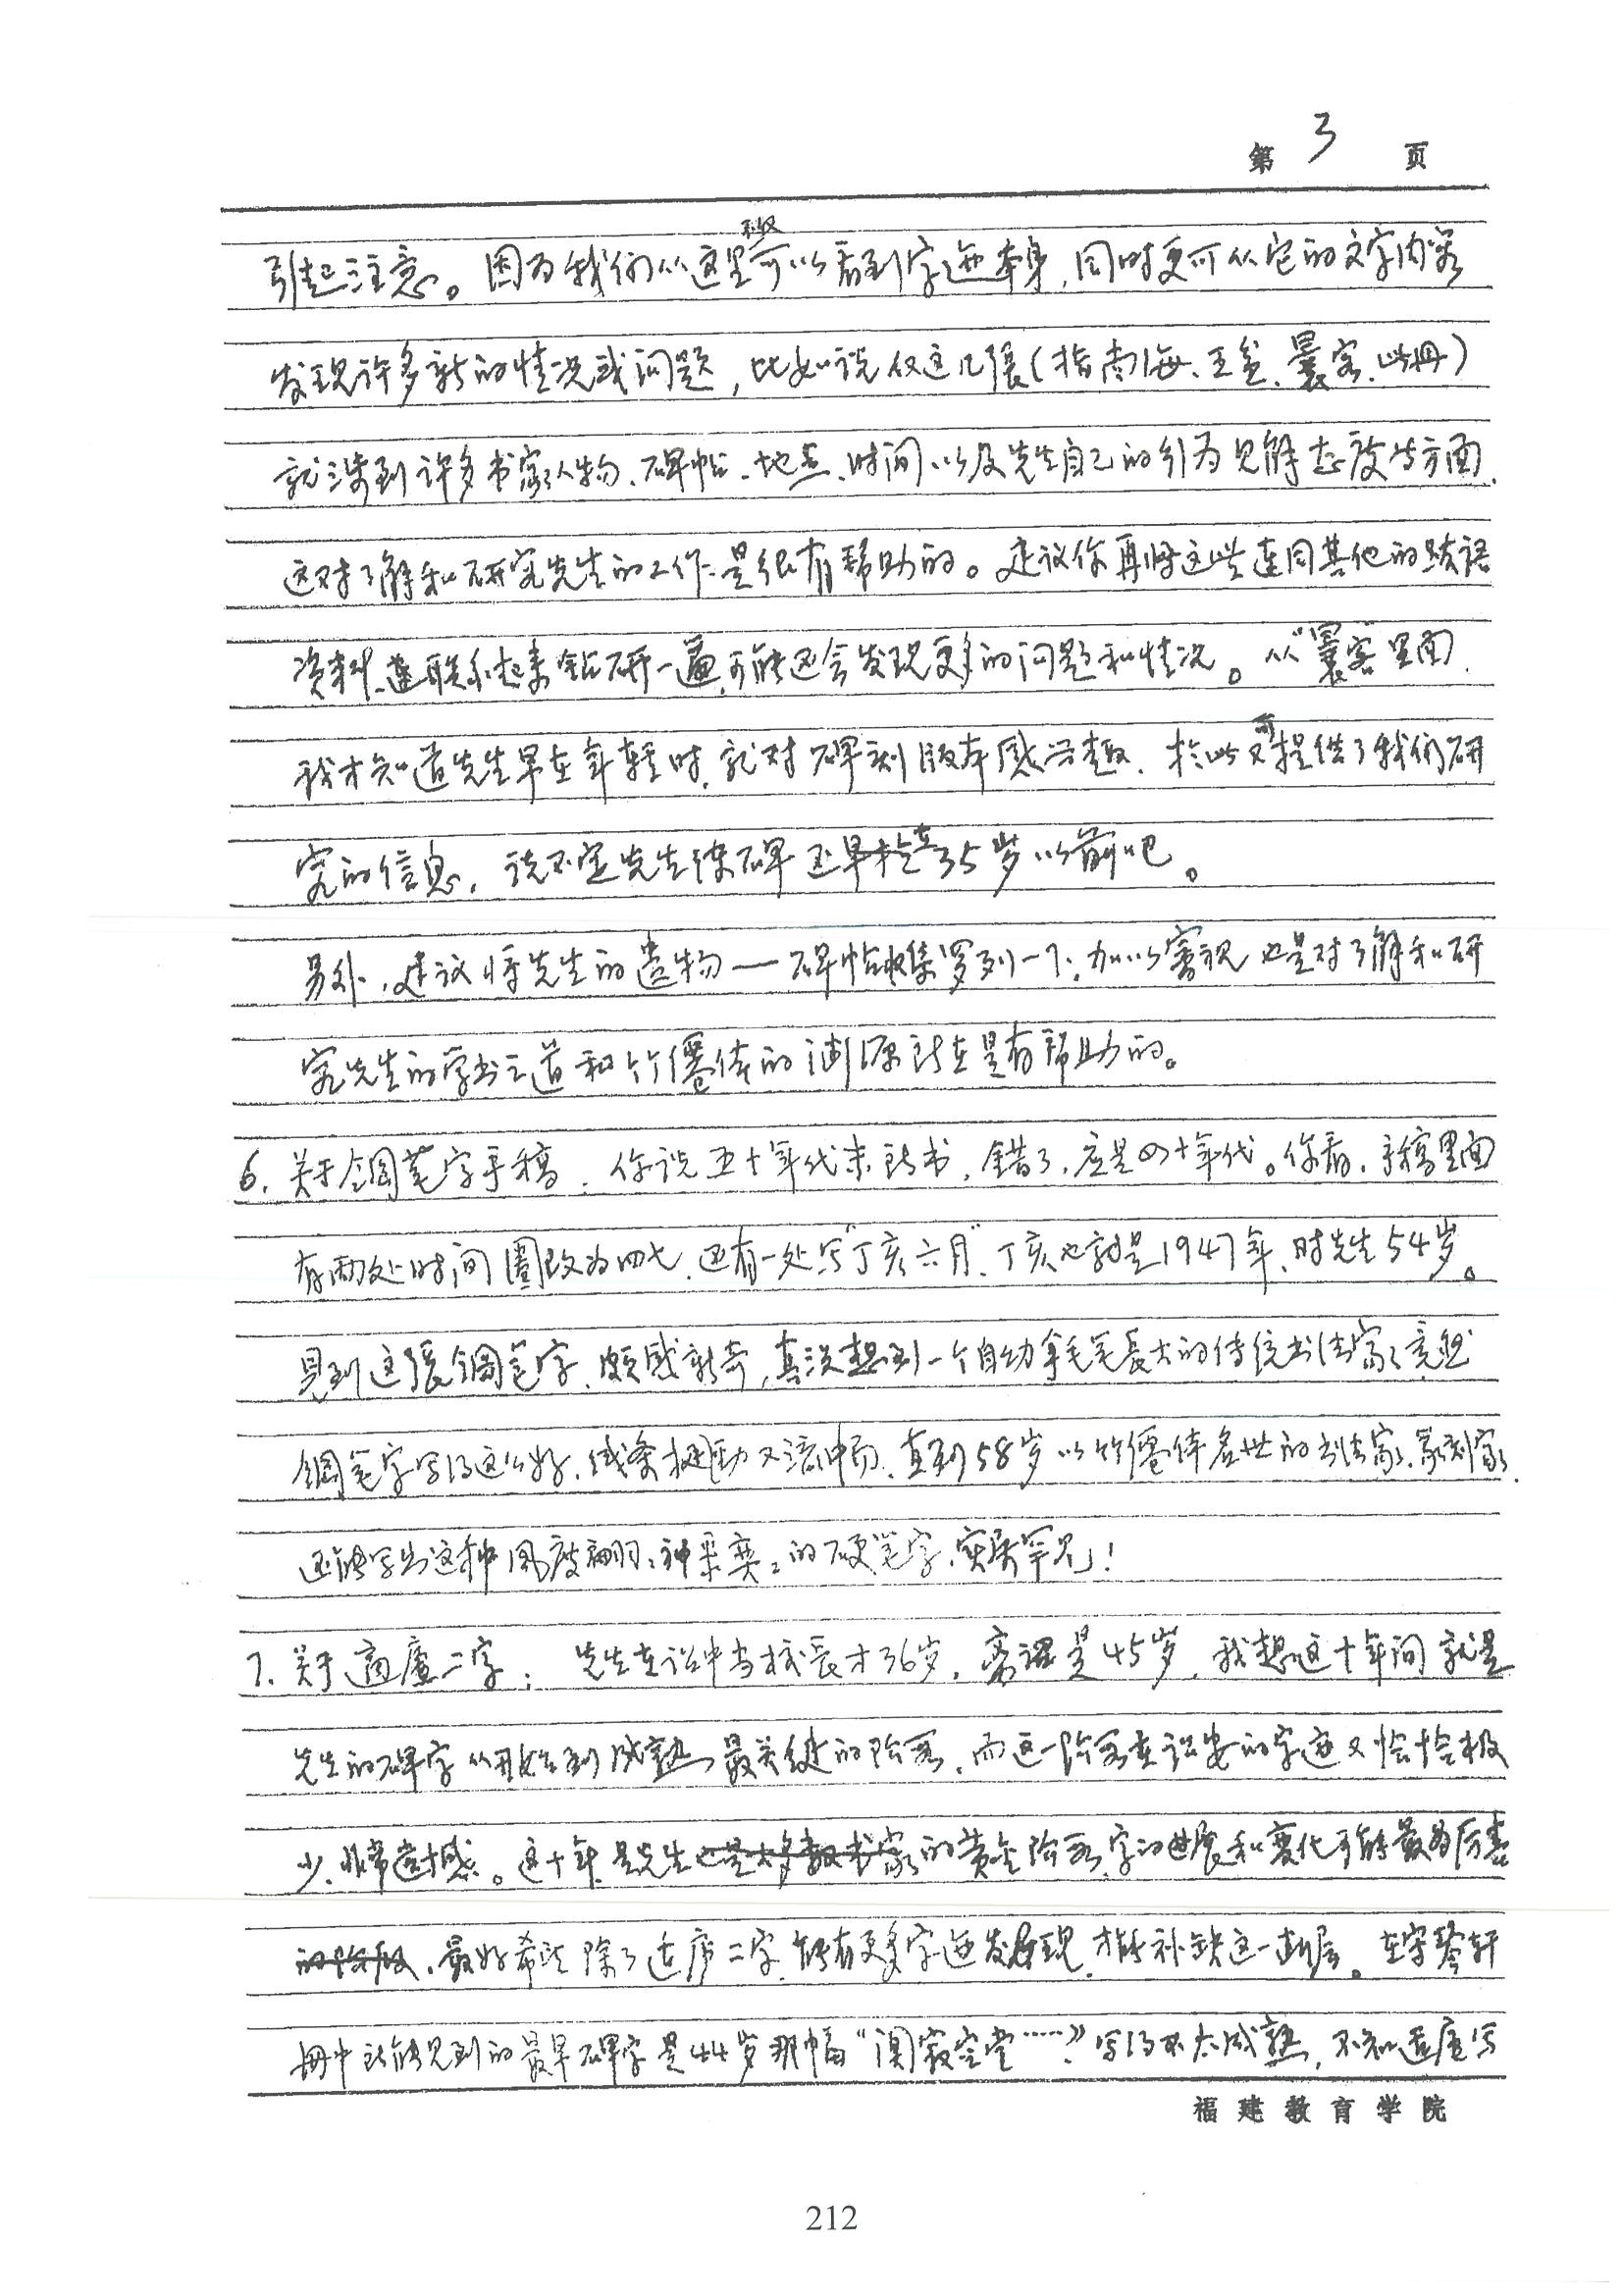 第 3 页
引起注意。因为我们从这里不仅可以看到字迹本身,同时更可从它的文字内容
发现许多新的情况或问题,比如说仅这几张(指南海、王金、曩客、此册)
就涉到许多书家人物、碑帖、地点、时间以及先生自己的引为见解态度等方面,
这对了解和研究先生的工作是很有帮助的。建议你再将这些连同其他的跋语
资料、连联系起来钻研一遍,可能还会发现更多的问题和情况。从“曩客里面,
我才知道先生早在年轻时,就对碑刻版本感兴趣,于此又可提供了我们研
究的信息,说不定先生练碑还早在35岁以前吧。
另外,建议将先生的遗物——碑帖收集罗列一下,加以审视也是对了解和研
究先生的学书之道和竹僊体的渊源所在是有帮助的。
6. 关于钢笔字手稿,你说五十年代末所书,错了,应是四十年代。你看,手稿里面
有两处时间圈改为四七,还有一处写“丁亥六月”,丁亥也就是1947年,时先生54岁。
见到这张钢笔字,颇感新奇,真没想到一个自幼拿毛笔长大的传统书法家竟然
钢笔字写得这么好,线条挺劲又流畅,直到58岁以竹僊体名世的书法家、篆刻家,
还能写出这种风度翩羽:神采奕:的硬笔字,实属罕见!
7. 关于适庐二字: 先生在诏中当校长才36岁,离诏是45岁,我想这十年间就是
先生的碑字从开始到成熟最关键的阶段,而这一阶段在诏安的字迹又恰恰极
少,非常遗憾。这十年是先生也是大多数书家的黄金阶段,字的进展和变化可能最为厉害
的阶段,最好希望除了适庐二字,能有更多字迹发现,才能补缺这一断层。在宋琴轩
册中所能见到的最早碑字是44岁那幅“闃寂空堂……”,写得不太成熟,不知适庐写
福建教育学院
212